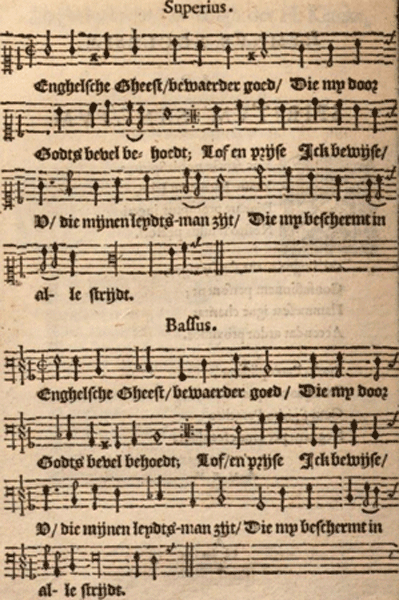 Superius.
Enghelsche Gheest/bewaerder goed/ Die my door
Godts bevel be- hoedt; Lof en prijse Ick bewijse/
V/ die mijnen leydts-man zijt/ Die my beschermt in
al- le strijdt.
Bassus.
Enghelsche Gheest/bewaerder goed/ Die my door
Godts bevel behoedt; Lof/en prijse Ick bewijse/
V/ die mijnen leydts-man zijt/ Die my beschermt in
al- le strijdt.